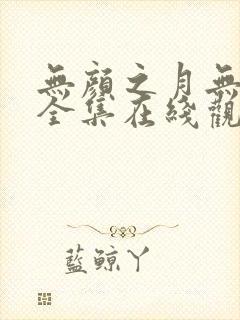 無顏之月無
全集在綫觀
藍鯨丫